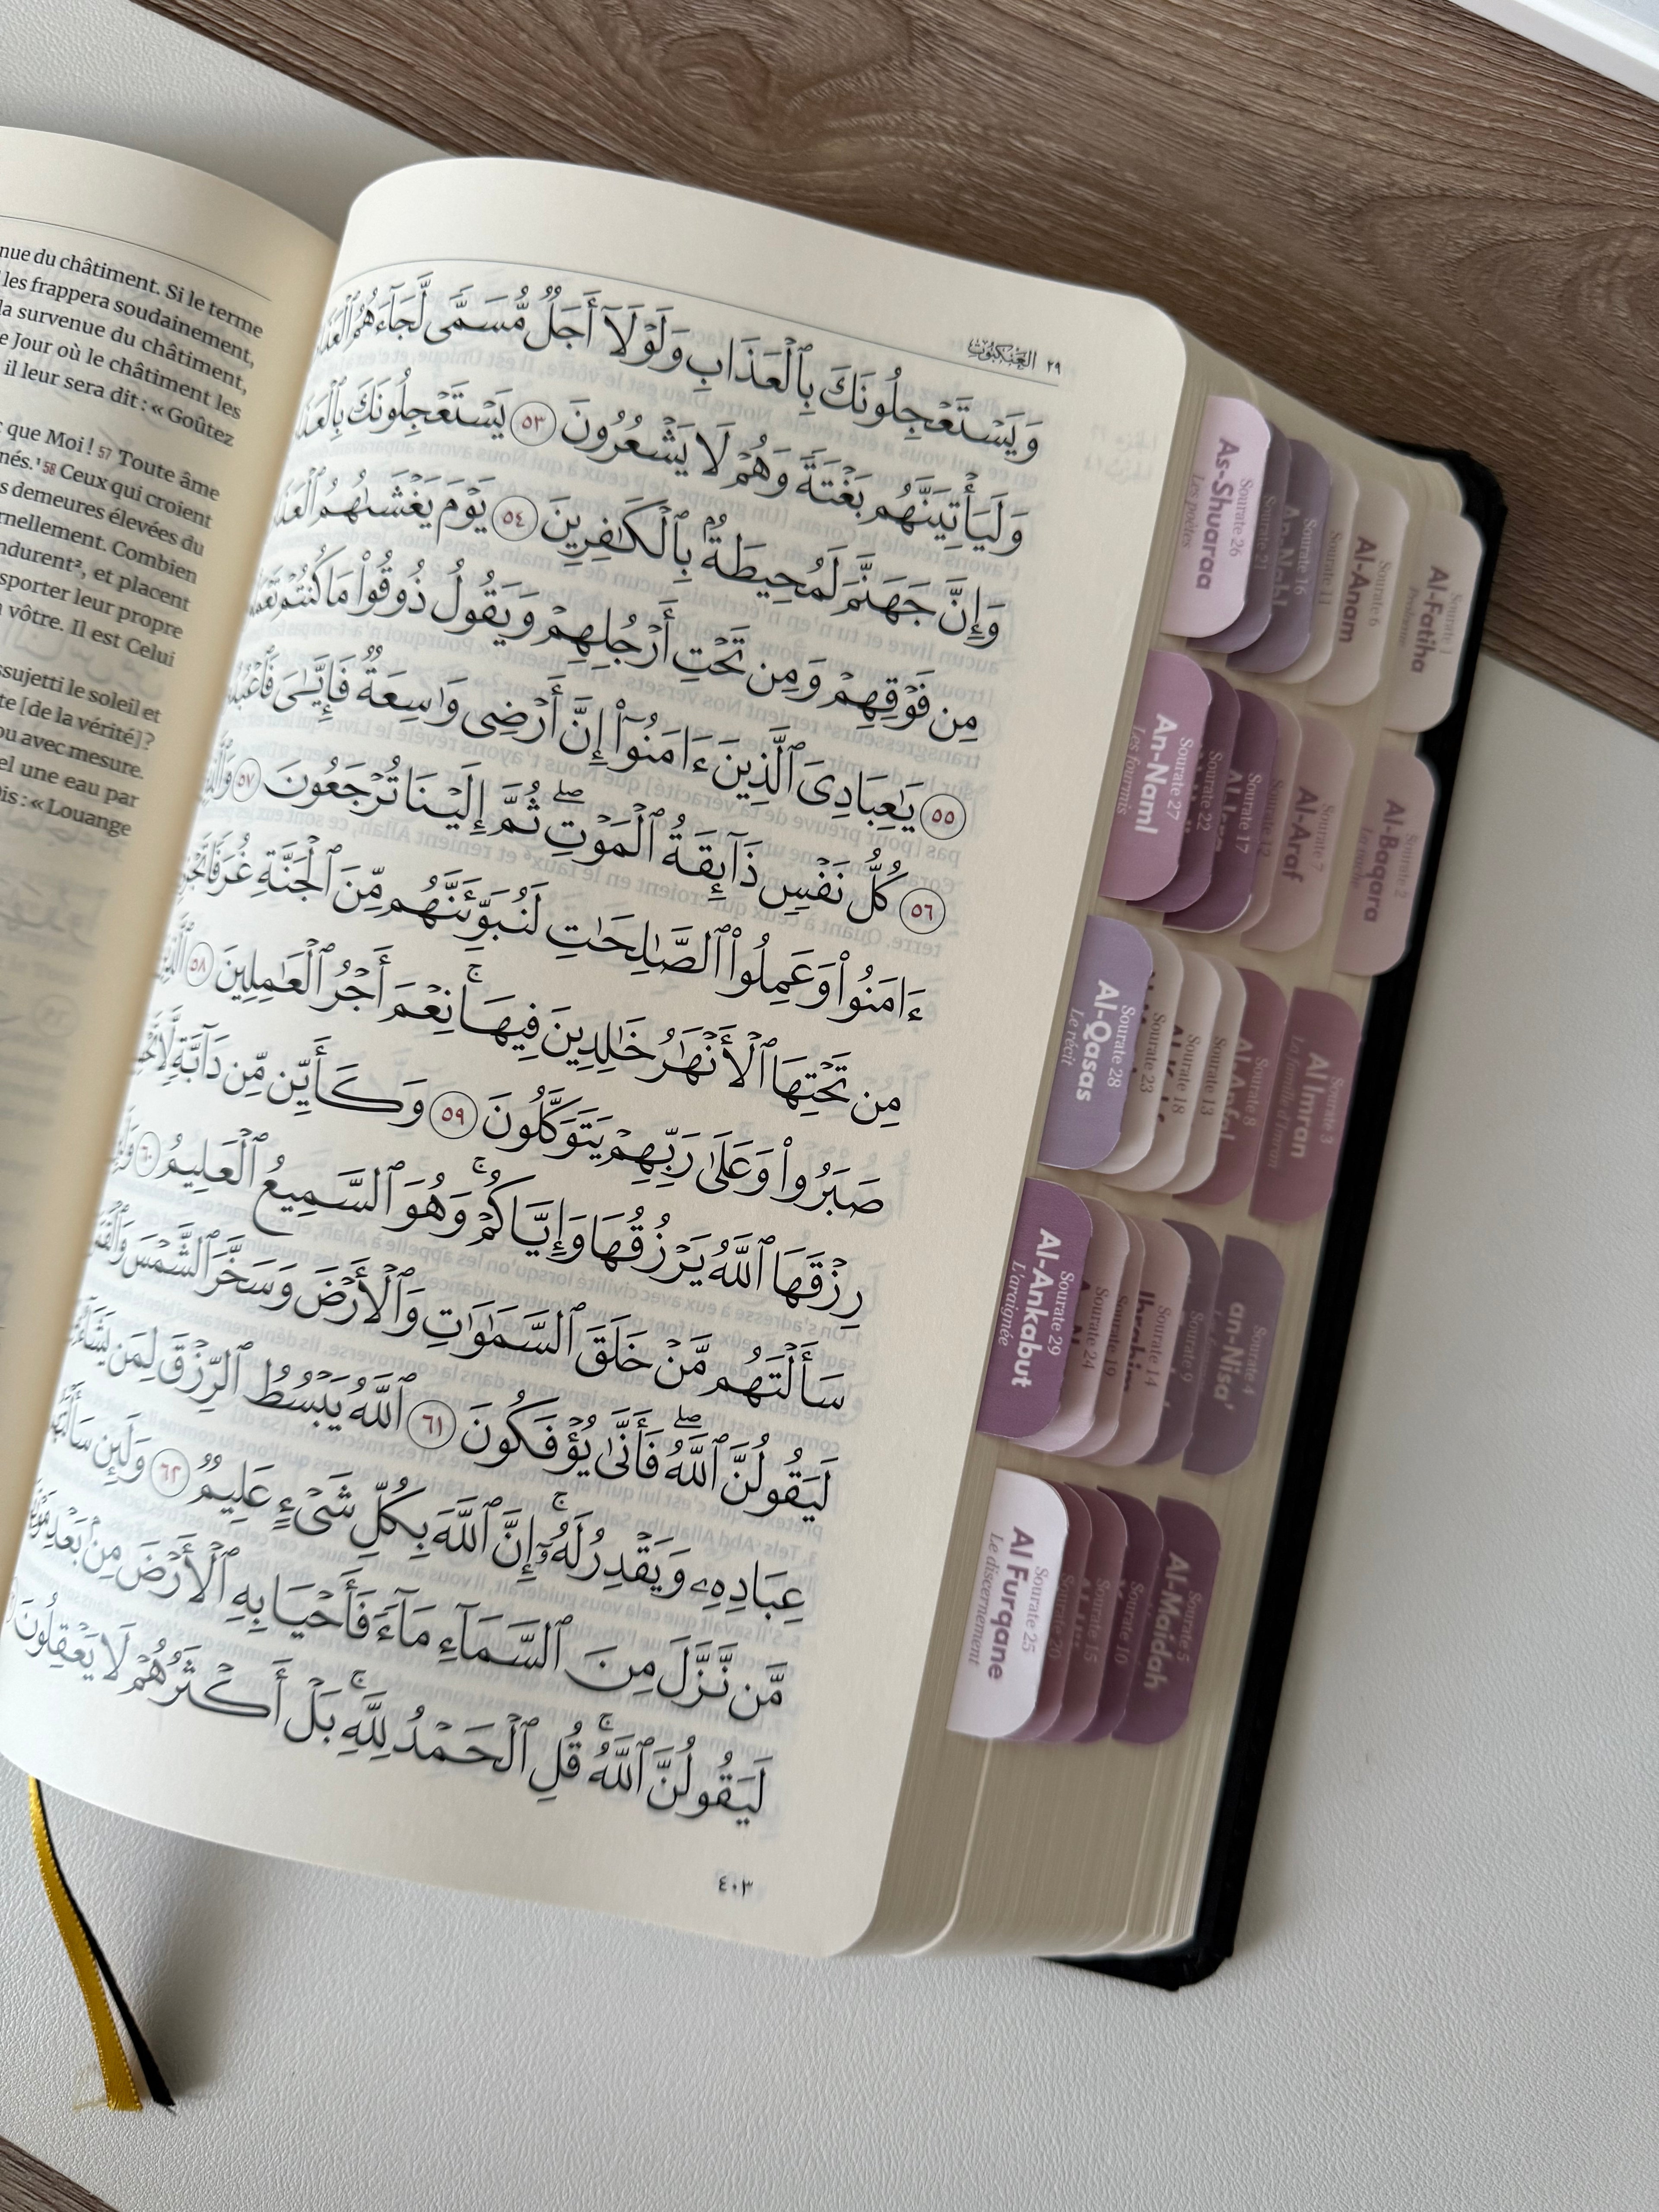 nue du châtiment. Si le terme
les frappera soudainement,
la survenue du châtiment,
Jour où le châtiment les
il leur sera dit : « Goûtez
que Moi ! 57 Toute âme
58 Ceux qui croient
demeures élevées du
Combien
et placent
sporter leur propre
vôtre. Il est Celui
ssujetti le soleil et
te [de la vérité] ?
avec mesure.
une eau par
« Louange
٢٩ العنكبوت
وَيَسْتَعْجِلُونَكَ بِٱلْعَذَابِ وَلَوْلَآ أَجَلٌ مُّسَمًّى لَّجَآءَهُمُ
وَلَيَأْتِيَنَّهُم بَغْتَةً وَهُمْ لَا يَشْعُرُونَ ٥٣ يَسْتَعْجِلُونَكَ
وَإِنَّ جَهَنَّمَ لَمُحِيطَةٌۢ بِٱلْكَٰفِرِينَ ٥٤ يَوْمَ يَغْشَىٰهُمُ
مِن فَوْقِهِمْ وَمِن تَحْتِ أَرْجُلِهِمْ وَيَقُولُ ذُوقُوا۟ مَا كُنتُمْ
٥٥ يَٰعِبَادِىَ ٱلَّذِينَ ءَامَنُوٓا۟ إِنَّ أَرْضِى وَٰسِعَةٌ فَإِيَّٰىَ
٥٦ كُلُّ نَفْسٍ ذَآئِقَةُ ٱلْمَوْتِ ۖ ثُمَّ إِلَيْنَا تُرْجَعُونَ ٥٧
ءَامَنُوا۟ وَعَمِلُوا۟ ٱلصَّٰلِحَٰتِ لَنُبَوِّئَنَّهُم مِّنَ ٱلْجَنَّةِ غُرَفًا
مِن تَحْتِهَا ٱلْأَنْهَٰرُ خَٰلِدِينَ فِيهَا ۚ نِعْمَ أَجْرُ ٱلْعَٰمِلِينَ ٥٨
صَبَرُوا۟ وَعَلَىٰ رَبِّهِمْ يَتَوَكَّلُونَ ٥٩ وَكَأَيِّن مِّن دَآبَّةٍ
رِزْقَهَا ٱللَّهُ يَرْزُقُهَا وَإِيَّاكُمْ ۚ وَهُوَ ٱلسَّمِيعُ ٱلْعَلِيمُ ٦٠
سَأَلْتَهُم مَّنْ خَلَقَ ٱلسَّمَٰوَٰتِ وَٱلْأَرْضَ وَسَخَّرَ ٱلشَّمْسَ
لَيَقُولُنَّ ٱللَّهُ ۖ فَأَنَّىٰ يُؤْفَكُونَ ٦١ ٱللَّهُ يَبْسُطُ ٱلرِّزْقَ لِمَن يَشَآءُ
عِبَادِهِۦ وَيَقْدِرُ لَهُۥٓ ۚ إِنَّ ٱللَّهَ بِكُلِّ شَىْءٍ عَلِيمٌ ٦٢ وَلَئِن
مَّن نَّزَّلَ مِنَ ٱلسَّمَآءِ مَآءً فَأَحْيَا بِهِ ٱلْأَرْضَ مِنۢ بَعْدِ
لَيَقُولُنَّ ٱللَّهُ ۚ قُلِ ٱلْحَمْدُ لِلَّهِ ۚ بَلْ أَكْثَرُهُمْ لَا يَعْقِلُونَ
٤٠٣
Sourate 26
As-Shuaraa
Les poètes
Sourate 21
Sourate 16
An-Nahl
Sourate 11
Sourate 6
Al-Anam
Sourate 1
Al-Fatiha
Sourate 27
An-Naml
Les fourmis
Sourate 22
Sourate 17
Sourate 12
Sourate 7
Al-Araf
Sourate 2
Al-Baqara
La vache
Sourate 28
Al-Qasas
Le récit
Sourate 23
Sourate 18
Sourate 13
Sourate 8
Al-Anfal
Sourate 3
Al Imran
La famille d'Imran
Sourate 29
Al-Ankabut
L'araignée
Sourate 24
Sourate 19
Sourate 14
Ibrahim
Sourate 9
Sourate 4
an-Nisa'
Sourate 25
Al Furqane
Le discernement
Sourate 20
Sourate 15
Sourate 10
Sourate 5
Al-Maidah